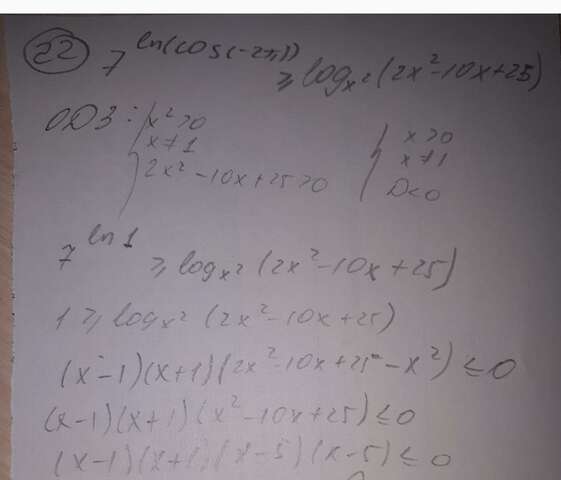 22) 7^ln(cos(-2π)) ≥ log_x²(2x²-10x+25)
ОДЗ: { x²>0 { x>0
x≠1 x≠1
2x²-10x+25>0 D<0
7^ln1 ≥ log_x²(2x²-10x+25)
1 ≥ log_x²(2x²-10x+25)
(x-1)(x+1)(2x²-10x+25-x²) ≤ 0
(x-1)(x+1)(x²-10x+25) ≤ 0
(x-1)(x+1)(x-5)(x-5) ≤ 0